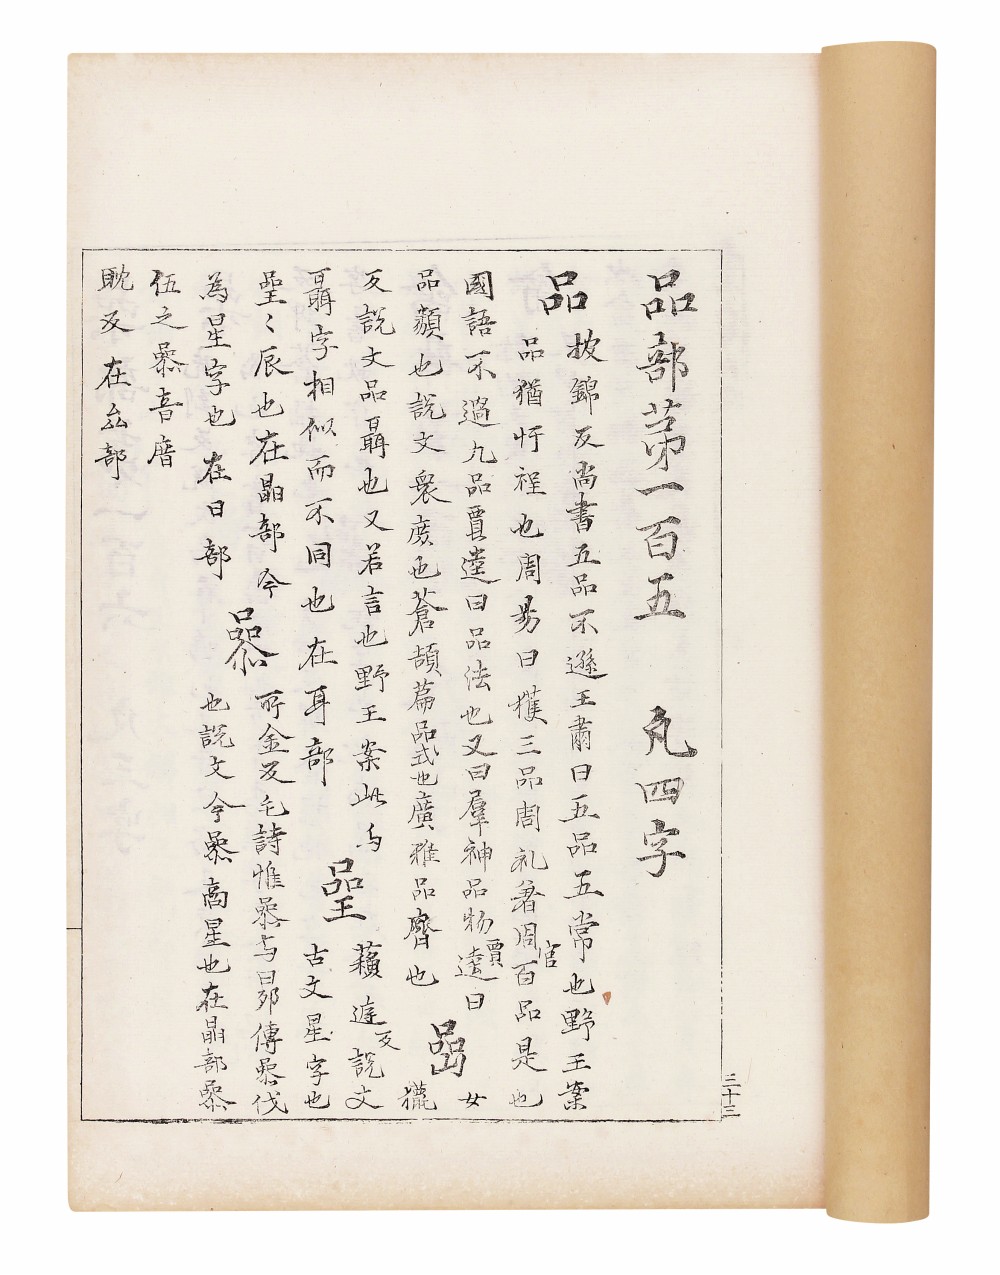 品部苐一百五　凡四字
品 披錦反尚書五品不遜王肅曰五品五常也野王案
品猶忓程也周昜曰獲三品周礼著周官百品是也
國語不過九品賈逵曰品法也又曰羣神品物賈逵曰
品類也說文衆庻也蒼頡篇品式也廣雅品齊也 喦 女獵
反說文品聶也又若言也野王案此与
聶字相似而不同也在耳部 𠱠 藾遑反說文
星〻辰也在晶部今 古文星字也
為星字也在日部 喿 所金反毛詩惟喿与昴傳喿伐
也說文今喿啇星也在晶部喿
伍之喿音厝
眈反在厽部
三十三